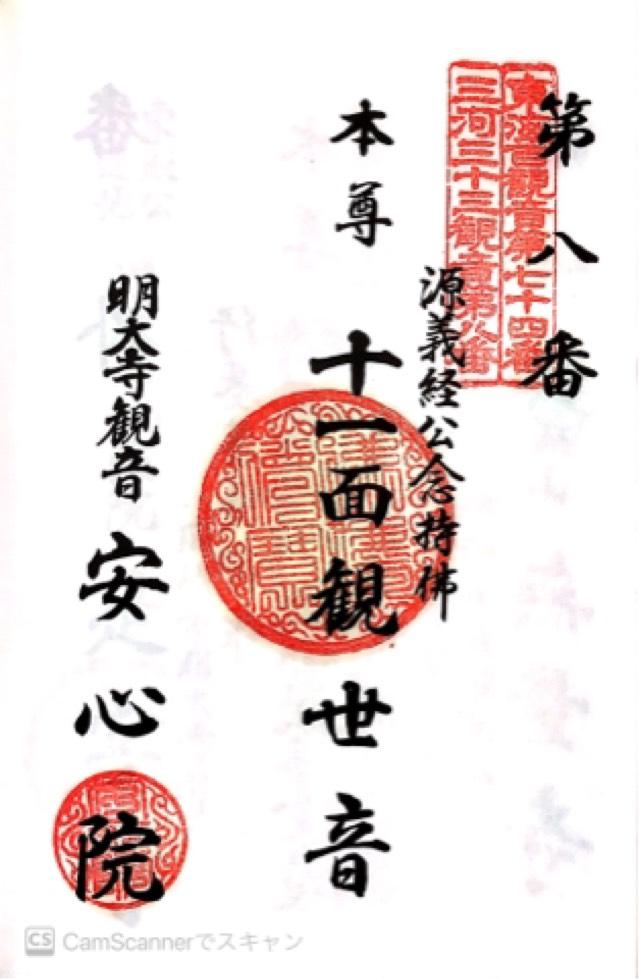 第八番
東海百観音第七十四番
三河三十三観音第八番
源義経公念持佛
本尊 十一面観世音
明大寺観音 安心院
CS CamScannerでスキャン